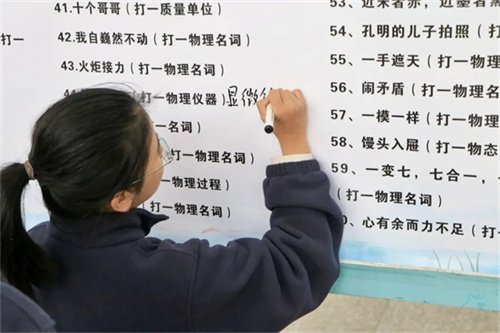 41.十个哥哥（打一质量单位）
42.我自巍然不动（打一物理名词）
43.火炬接力（打一物理名词）
打一物理仪器）显微
一名词）
打一物理名词）
一物理过程）
打一物理名词）
打一
53、近朱者赤，近墨者
54、孔明的儿子拍照（打
55、一手遮天（打一物理
56、闹矛盾（打一物理名
57、一模一样（打一物理
58、馒头入屉（打一物态
59、一变七，七合一，
（打一物理名词）
0、心有余而力不足（打一